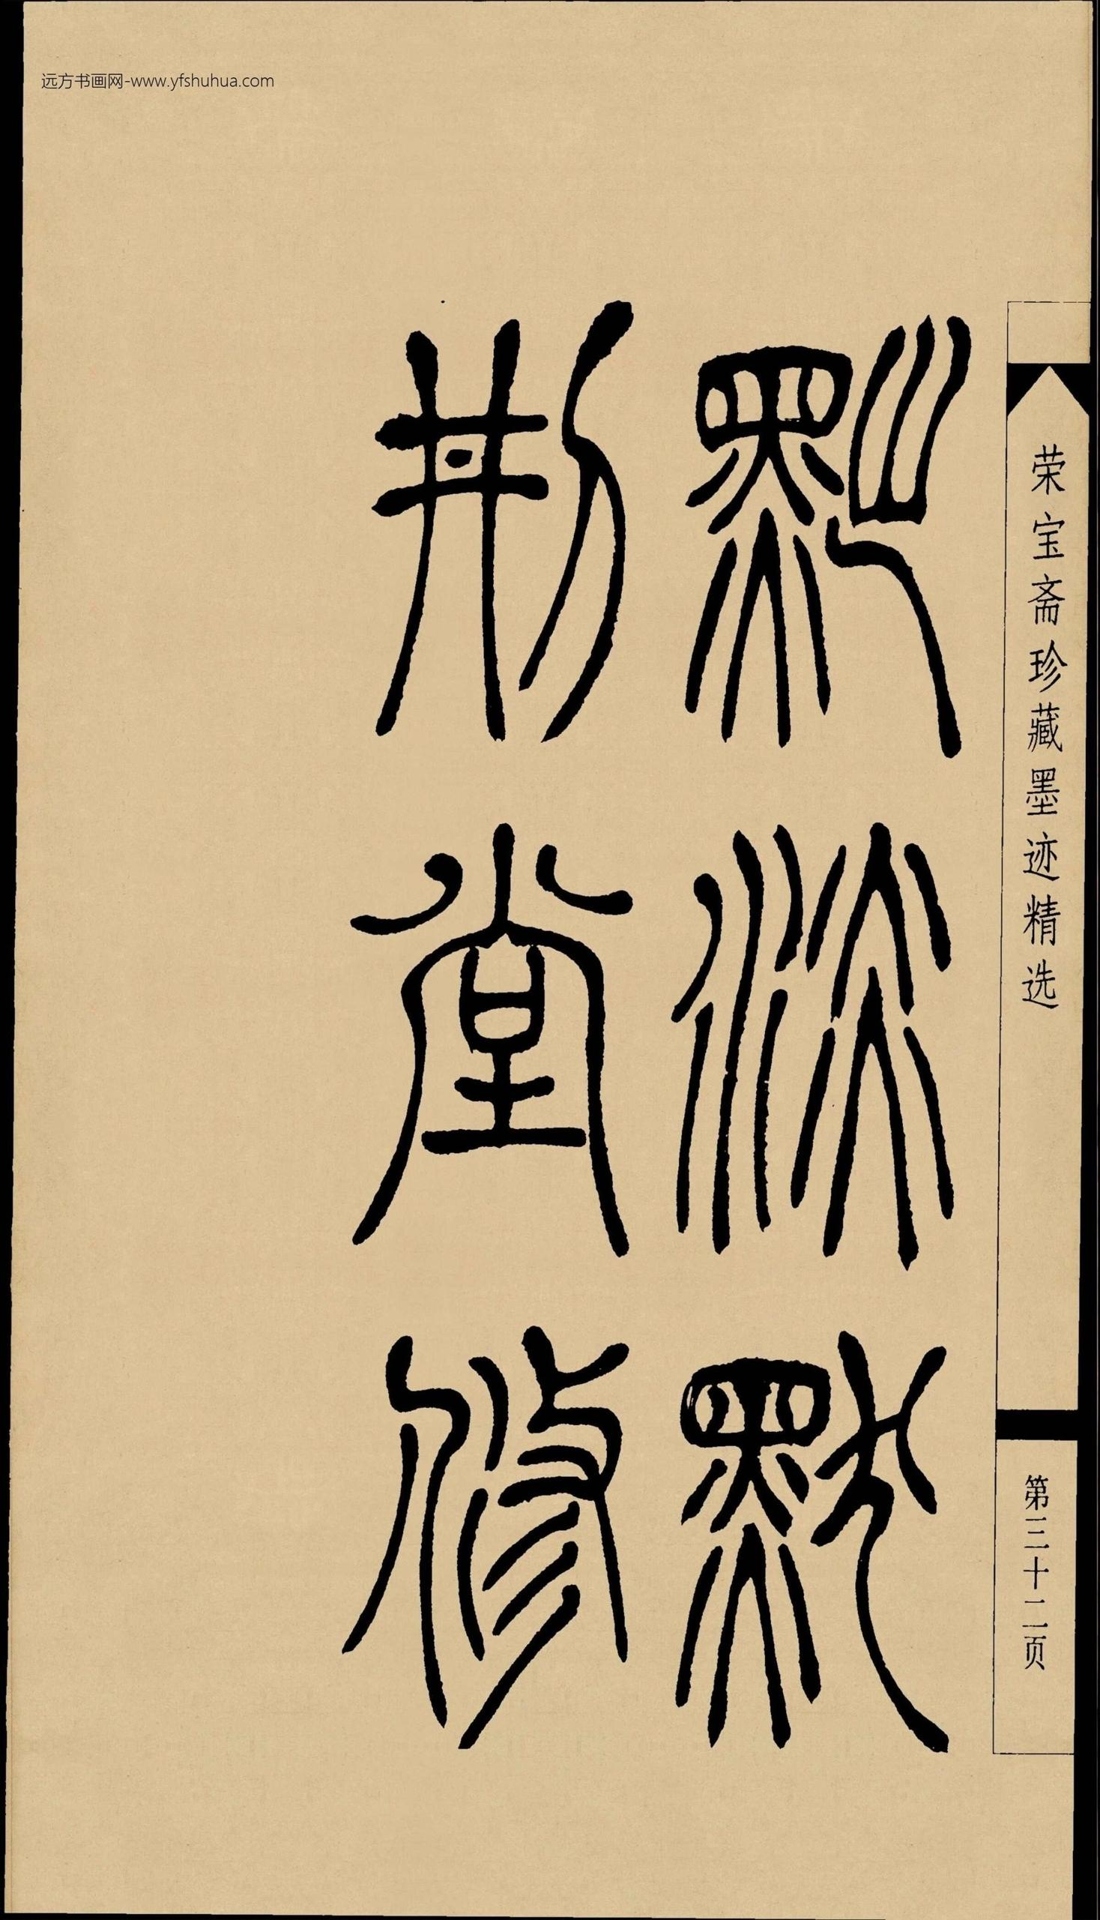 远方书画网-www.yfshuhua.com
荣宝斋珍藏墨迹精选
第三十二页
黜 默
刑堂修